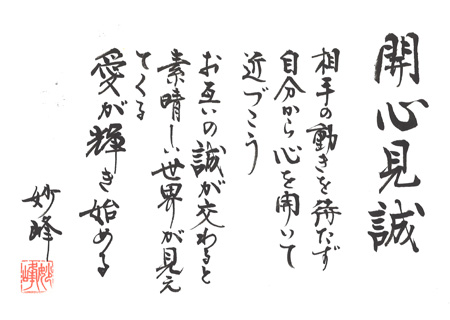 開心見誠
相手の動きを待たず
自分から心を開いて
近づこう
お互いの誠が交わると
素晴しい世界が見え
てくる
愛が輝き始める
妙峰